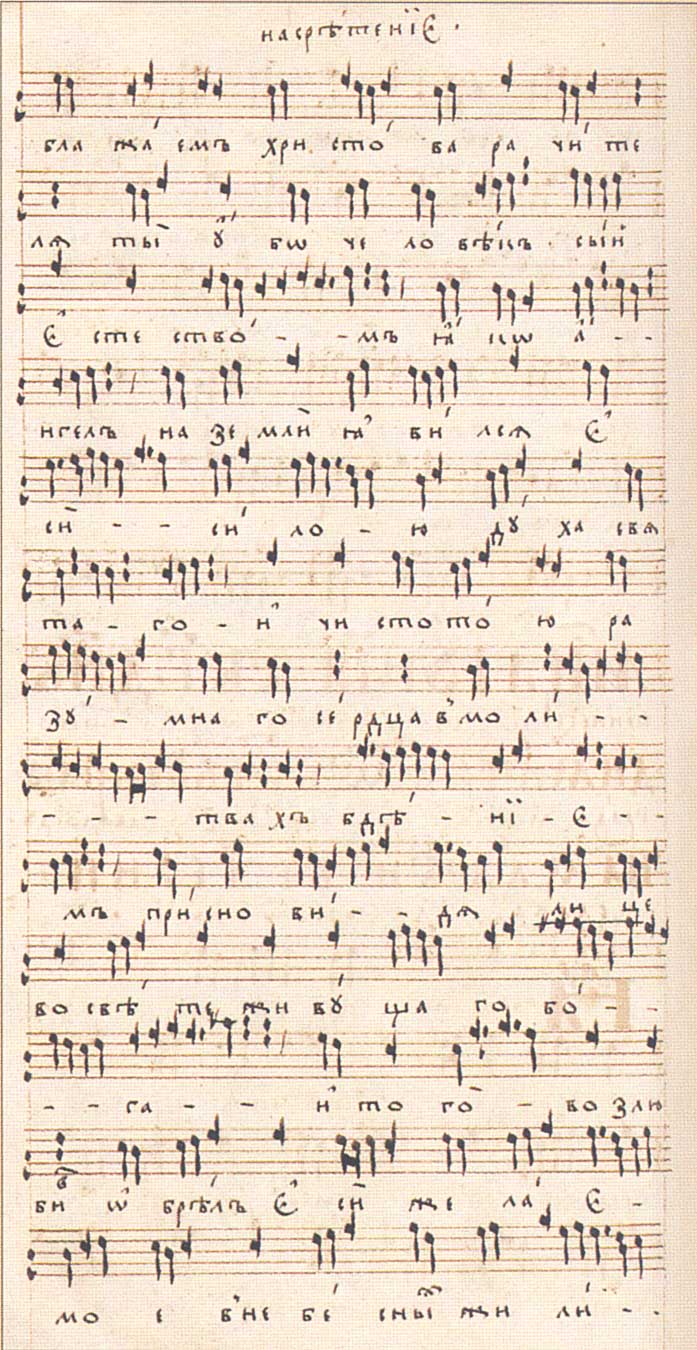 насрѣтенїе ·
бла жа́ емъ хри сто́ ва ра чи́ те
ля ты̀ ꙋ҆́ бѡ че ло вѣ́къ · сы́й
Е҆ сте ство́ - - мъ ꙗ҆́ кѡ а҆́ - -
нгелъ на зе мли̑ ꙗ҆ ви́ лся Е҆
сѝ - - си́ ло - ю дꙋ́ ха свя
та - го - и҆ чи сто то́ ю ра
зꙋ́ - мна го се́ рдца в мо ли́ - -
- - - тва хъ бдѣ́ - нї - Е - -
мъ при́ сно ви́ - - дя ли це
во свѣ́ те жи вꙋ́ ща го бо́ - -
- - га - - и҆ то го̀ - во злю
би ѡ брѣ́лъ Е҆ сѝ же ла́ Е -
мо е в не бе́ сны̑й жи ли́ - -